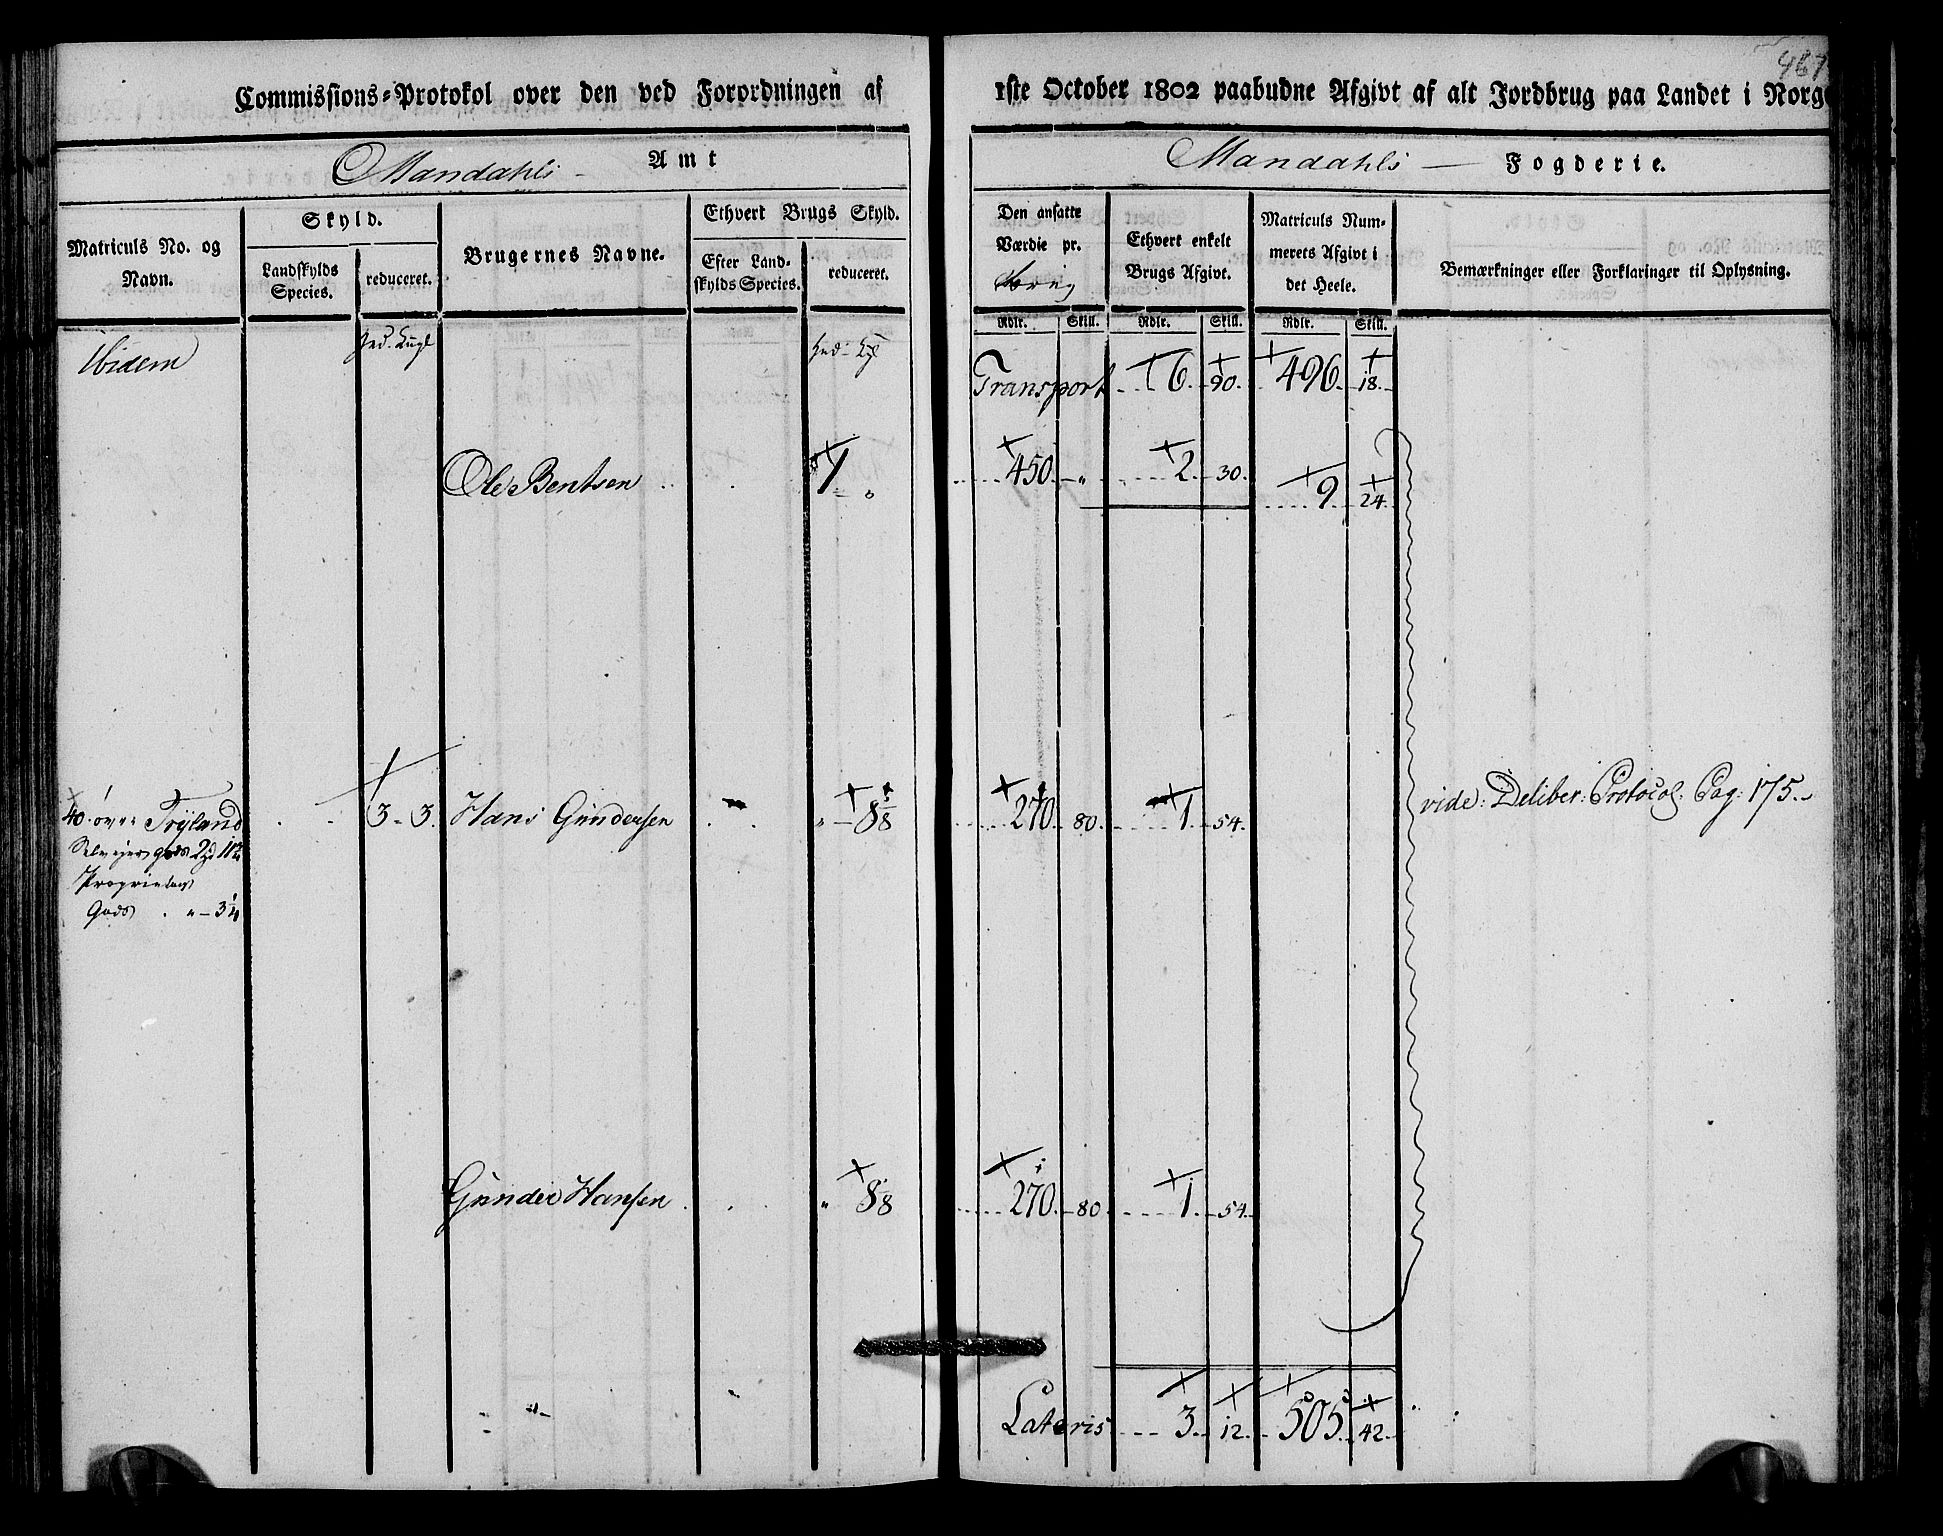 Commissions-Protokol over den ved Forordningen af 1ste October 1802 paabudne Afgivt af alt Jordbrug paa Landet i Norge
467
Mandahls Amt
Mandahls Fogderie.
Matriculs No. og Navn.
Skyld.
Landskylds Species.
reduceret.
Brugernes Navne.
Ethvert Brugs Skyld.
Efter Landskylds Species.
reduceret.
Den ansatte Værdie pr.
Ethvert enkelt Brugs Afgivt.
Matriculs Nummerets Afgivt i det Heele.
Bemærkninger eller Forklaringer til Oplysning.
Rdlr. Skill. Rdlr. Skill. Rdlr. Skill.
Ibidem
Transport 6. 90. 496. 18.
Ole Bentsen 1 " 450 " 2. 30. 9 24.
40. øvre Tryland 3 - 3. Hans Gundersen " 8 5/8 270. 80. 1. 54. vide: Deliber: Protocol: Pag: 175.
Selveyer gods
Proprietair
Gods " 3 1/4
Gunder Hansen " 8 5/8 270. 80. 1. 54.
Lateris 3. 12. 505. 42.